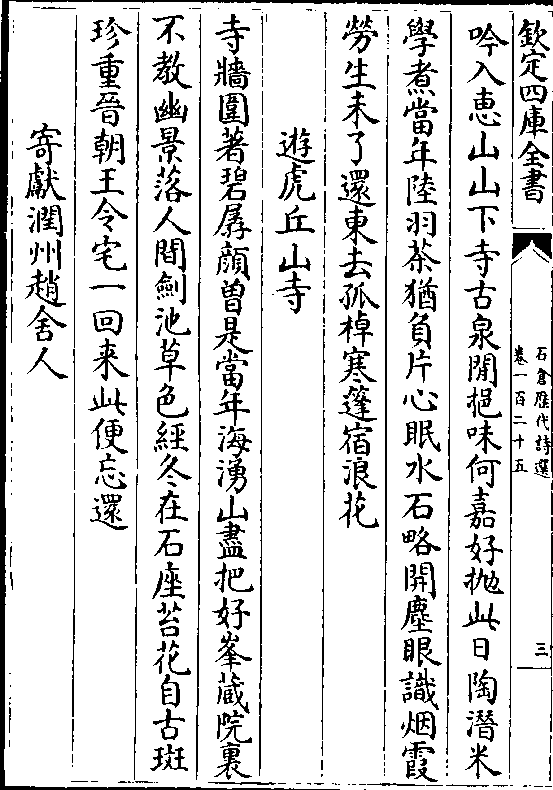 欽定四庫全書
石倉歷代詩選
卷一百二十五
三
吟入惠山山下寺古泉閒挹味何嘉好抛此日陶潛米
學煮當年陸羽茶猶負片心眠水石略開塵眼識烟霞
勞生未了還東去孤棹寒蓬宿浪花
遊虎丘山寺
寺牆圍著碧孱顔曾是當年海湧山盡把好峯藏院裏
不教幽景落人間劍池草色經冬在石座苔花自古斑
珍重晉朝王令宅一回來此便忘還
寄獻潤州趙舍人